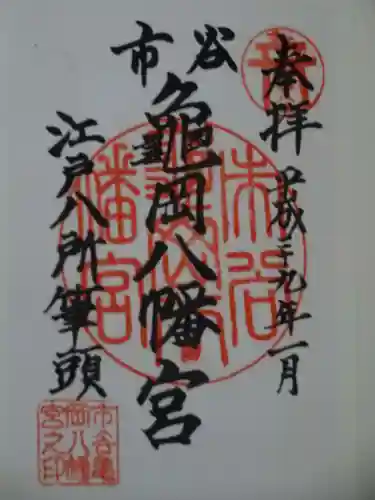 奉拝
平成二十九年一月
市谷
亀岡八幡宮
江戸八所筆頭
市谷亀
岡八幡
宮之印